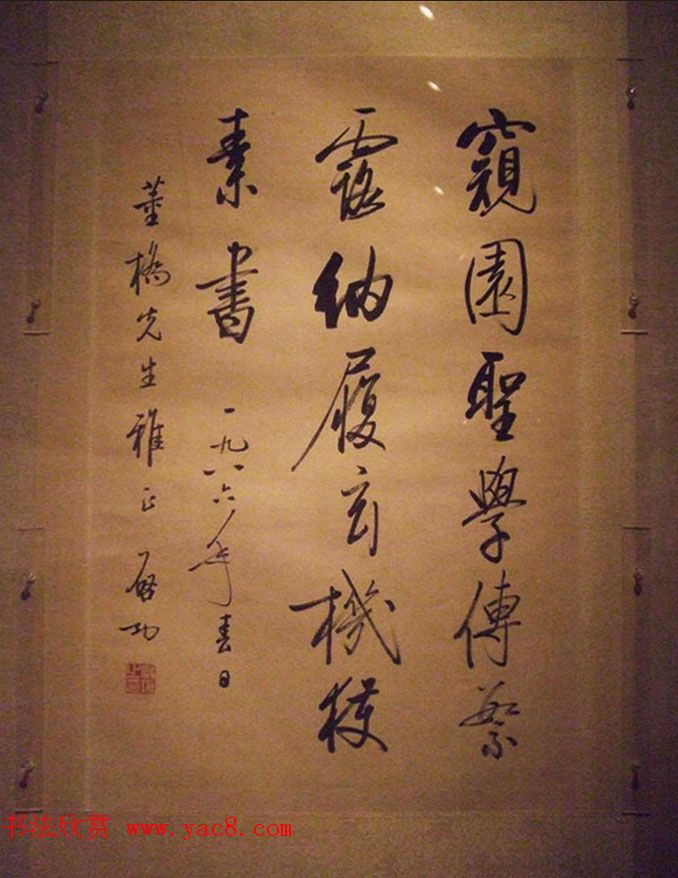 窺園聖學傳繁
露納履玄機獲
素書 一九八六年春日
董橋先生雅正 啟功
书法欣赏 www.yac8.com